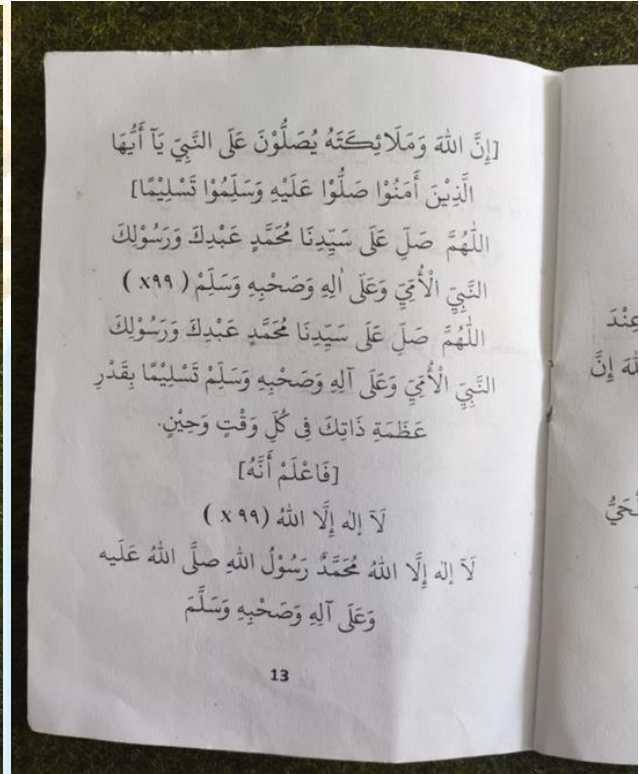 [إِنَّ اللهَ وَمَلَائِكَتَهُ يُصَلُّوْنَ عَلَى النَّبِيّ يَآ أَيُّهَا
الَّذِيْنَ أَمَنُوْا صَلُّوْا عَلَيْهِ وَسَلِّمُوْا تَسْلِيْمًا]
اللّٰهُمَّ صَلِّ عَلَى سَيِّدِنَا مُحَمَّدٍ عَبْدِكَ وَرَسُوْلِكَ
النَّبِيِّ الْأُمِّيِّ وَعَلَى اٰلِهِ وَصَحْبِهِ وَسَلِّمْ (x٩٩ )
اللّٰهُمَّ صَلِّ عَلَى سَيِّدِنَا مُحَمَّدٍ عَبْدِكَ وَرَسُوْلِكَ
النَّبِيِّ الْأُمِّيِّ وَعَلَى آلِهِ وَصَحْبِهِ وَسَلِّمْ تَسْلِيْمًا بِقَدْرِ
عَظَمَةِ ذَاتِكَ فِى كُلِّ وَقْتٍ وَحِيْنٍ.
[فَاعْلَمْ أَنَّهُ]
لَآ إِلٰه إِلَّا اللهُ (x ٩٩ )
لَآ إِلٰه إِلَّا اللهُ مُحَمَّدٌ رَسُوْلُ اللهِ صلَّى اللهُ عَلَيه
وَعَلَى آلِهِ وَصَحْبِهِ وَسَلَّمَ
13
عِنْدَ
إِنَّ